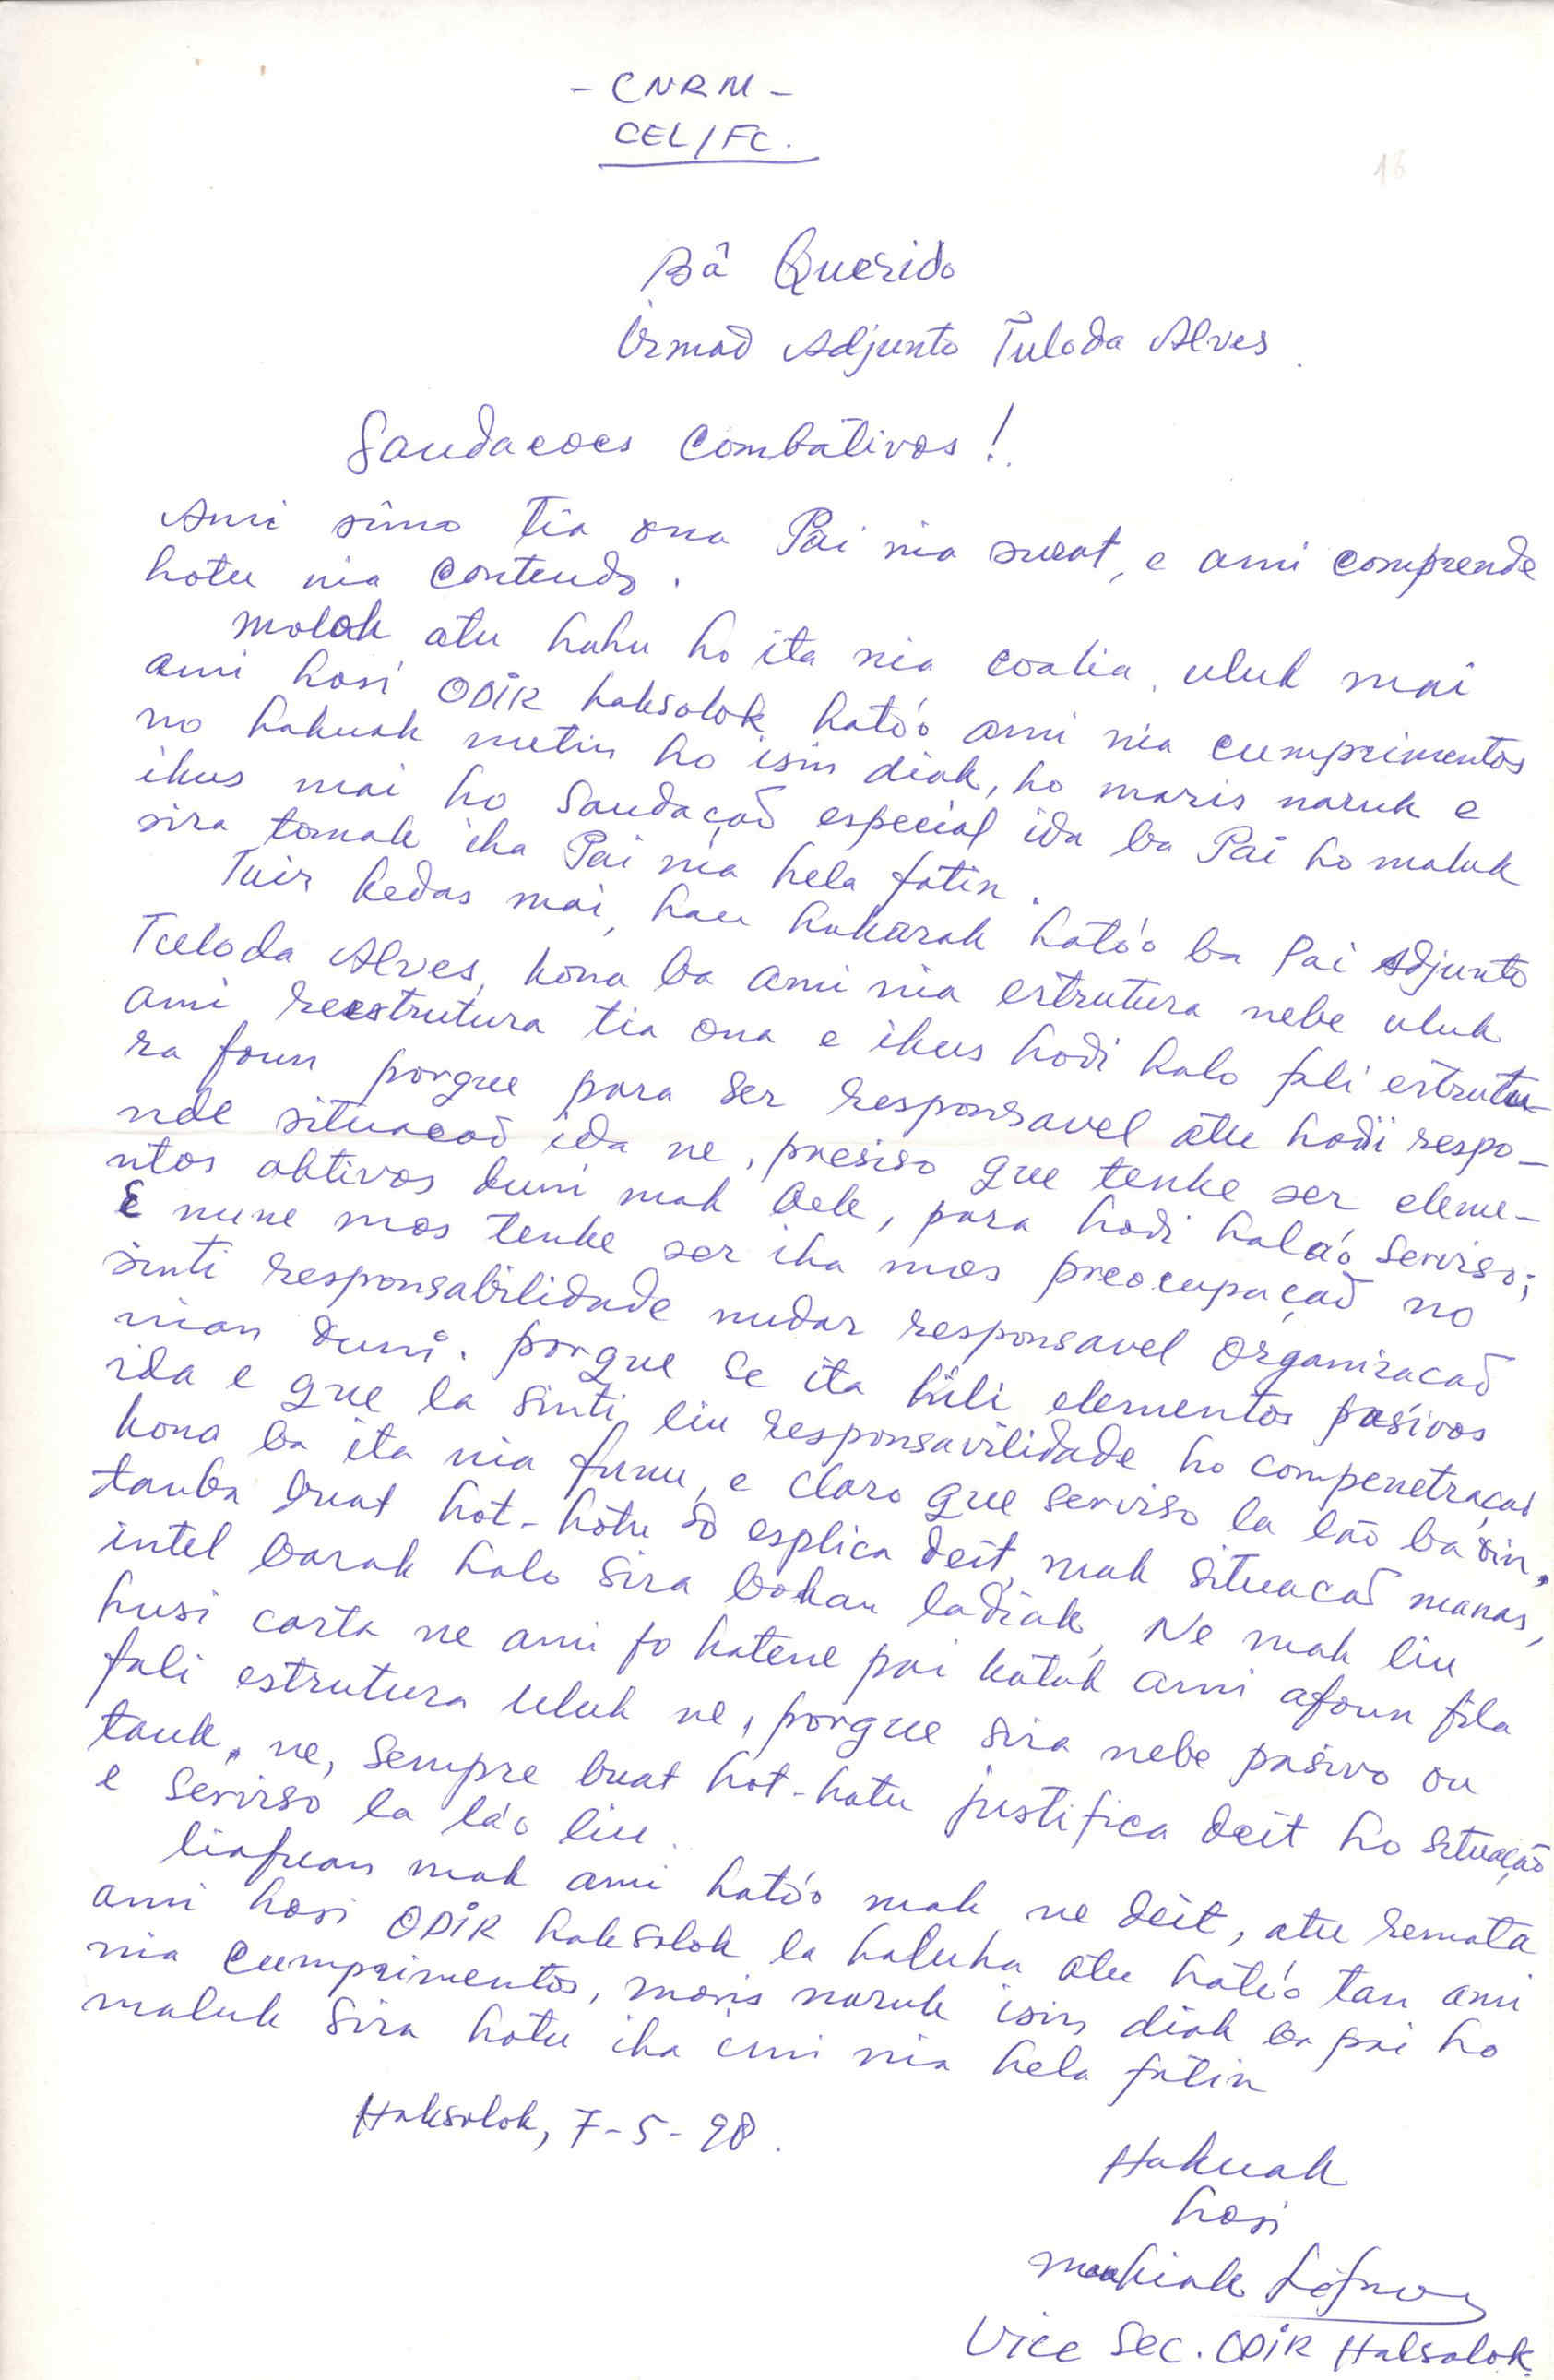 - CNRM -
CEL/FC.
16
Bâ Querido
Irmaõ Adjunto Tuloda Alves.
Saudacoes Combativos!
Ami simo tia ona Pai nia surat, e ami comprende
hotu nia conteudo.
Molok atu hahu ho ita nia coalia, uluk mai
ami hosi ODIR haksolok ható'o ami nia cumprimentos
no hakuak metin ho isin diak, ho maris naruk e
ikus mai ho saudaçaõ especial ida ba Pai ho maluk
sira tomak iha Pai nia hela fatin.
Tuir kedas mai, hau hakarak ható'o ba Pai Adjunto
Tuloda Alves, kona ba ami nia estrutura nebe uluk
ami reestrutura tia ona e ikus hodi halo fali estrutu-
ra foun porque para ser responsavel atu hodi respo-
nde situacaõ ida ne, presiso que tenke ser eleme-
ntos aktivos duni mak bele, para hodi halaó servisо;
E nune mos tenke ser iha mos preocupaçaõ no
sinti responsabilidade nudar responsavel organizacaõ
nian duni. porque se ita hili elementos pasivos
ida e que la sinti liu responsavilidade ho compenetraçaõ
kona ba ita nia funu, e claro que serviso la laõ ba oin,
tanba buat hot-hotu sò esplica deit, mak situacaõ manas,
intel barak halo sira bokan ladiak, Ne mak liu
husi carta ne ami fo hatene pai katak ami afoun fila
fali estrutura uluk ne, porque sira nebe pasivo ou
tauk, ne, sempre buat hot-hotu justifica deit ho situação
e serviso la lá'o liu.
liafuan mak ami ható'o mak ne deit, atu remata
ami hosi ODIR haksolok la haluha atu ható'o tan ami
nia cumprimentos, moris naruk isin diak ba pai ho
maluk sira hotu iha imi nia hela fatin
Haksolok, 7-5-98.
Hakuak
hosi
Vice Sec. ODIR Halsalok